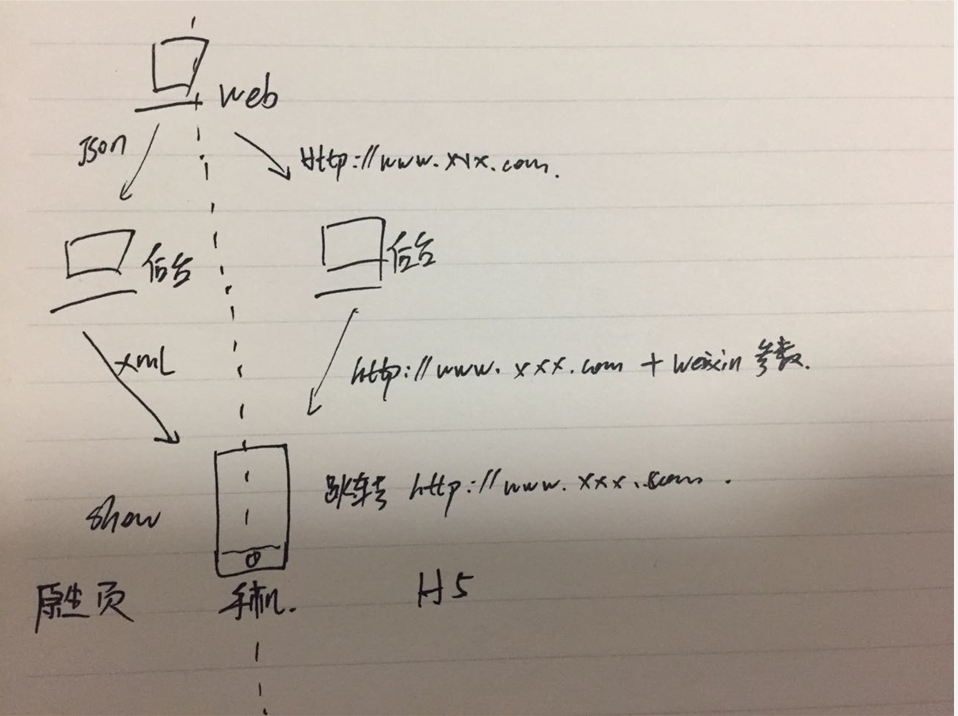 web
Json
Http://www.xxx.com.
后台
后台
xmL
http://www.xxx.com + weixin 参数.
跳转 http://www.xxx.com.
show
原生页
手机.
H5